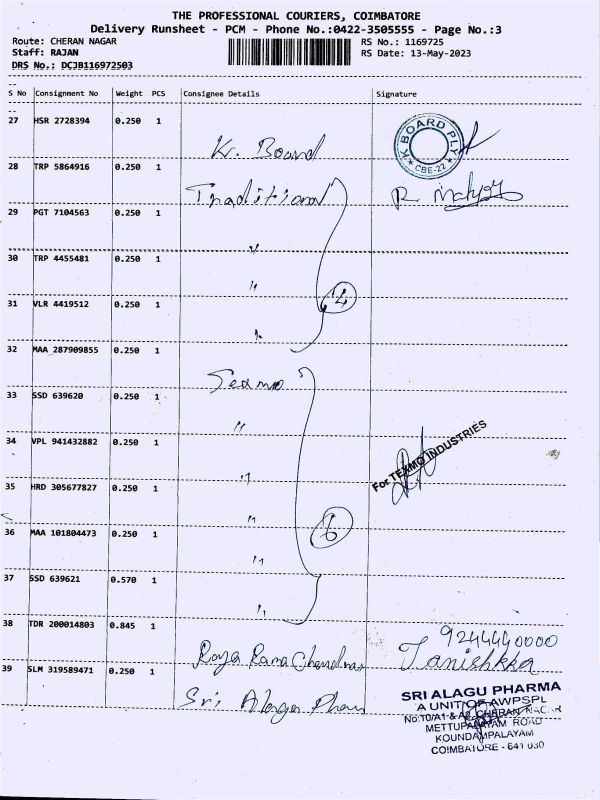 THE PROFESSIONAL COURIERS, COIMBATORE
Delivery Runsheet - PCM - Phone No.:0422-3505555 - Page No.:3
Route: CHERAN NAGAR RS No.: 1169725
Staff: RAJAN RS Date: 13-May-2023
DRS No.: DCJB116972503
S No Consignment No Weight PCS Consignee Details Signature
27 HSR 2728394 0.250 1
K. Board
K BOARD PLY
CBE-22
28 TRP 5864916 0.250 1
Traditional
R
29 PGT 7104563 0.250 1
"
30 TRP 4455481 0.250 1
" 4
31 VLR 4419512 0.250 1
"
32 MAA 287909855 0.250 1
Texmo
33 SSD 639620 0.250 1
"
34 VPL 941432882 0.250 1
" For TEXMO INDUSTRIES
35 HRD 305677827 0.250 1
" 6
36 MAA 101804473 0.250 1
"
37 SSD 639621 0.570 1
"
38 TDR 200014803 0.845 1
9244440000
Raja Rama Chendran Tanishkka
39 SLM 319589471 0.250 1
Sri Alagu Pham
SRI ALAGU PHARMA
A UNIT OF AWPSPL
No:10/A1 & A2, CHERAN NAGAR
METTUPALAYAM ROAD
KOUNDAMPALAYAM
COIMBATORE - 641 030